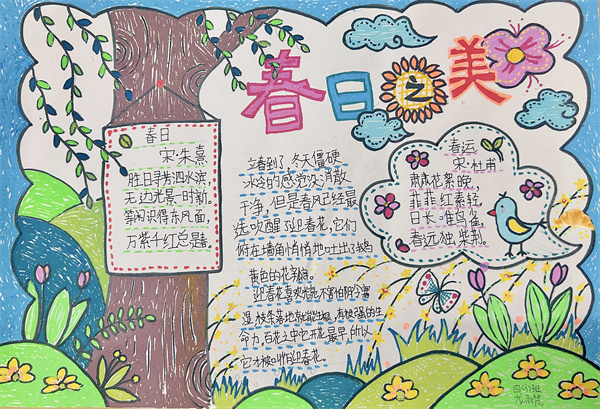 春日之美
春日
宋·朱熹
胜日寻芳泗水滨,
无边光景一时新。
等闲识得东风面,
万紫千红总是春。
立春到了,冬天僵硬
冰冷的感觉没消散
干净,但是春风已经最
先吹醒了迎春花,它们
俯在墙角悄悄地吐出了嫩
黄色的花骨朵。
迎春花喜欢光、不害怕阴冷寒
湿,枝条落地就能生根,有极强的生
命力,百花之中它开花最早,所以
它才被叫作迎春花。
春运
宋·杜甫
肃肃花絮晚,
菲菲红素轻。
日长唯鸟雀,
春远独柴荆。